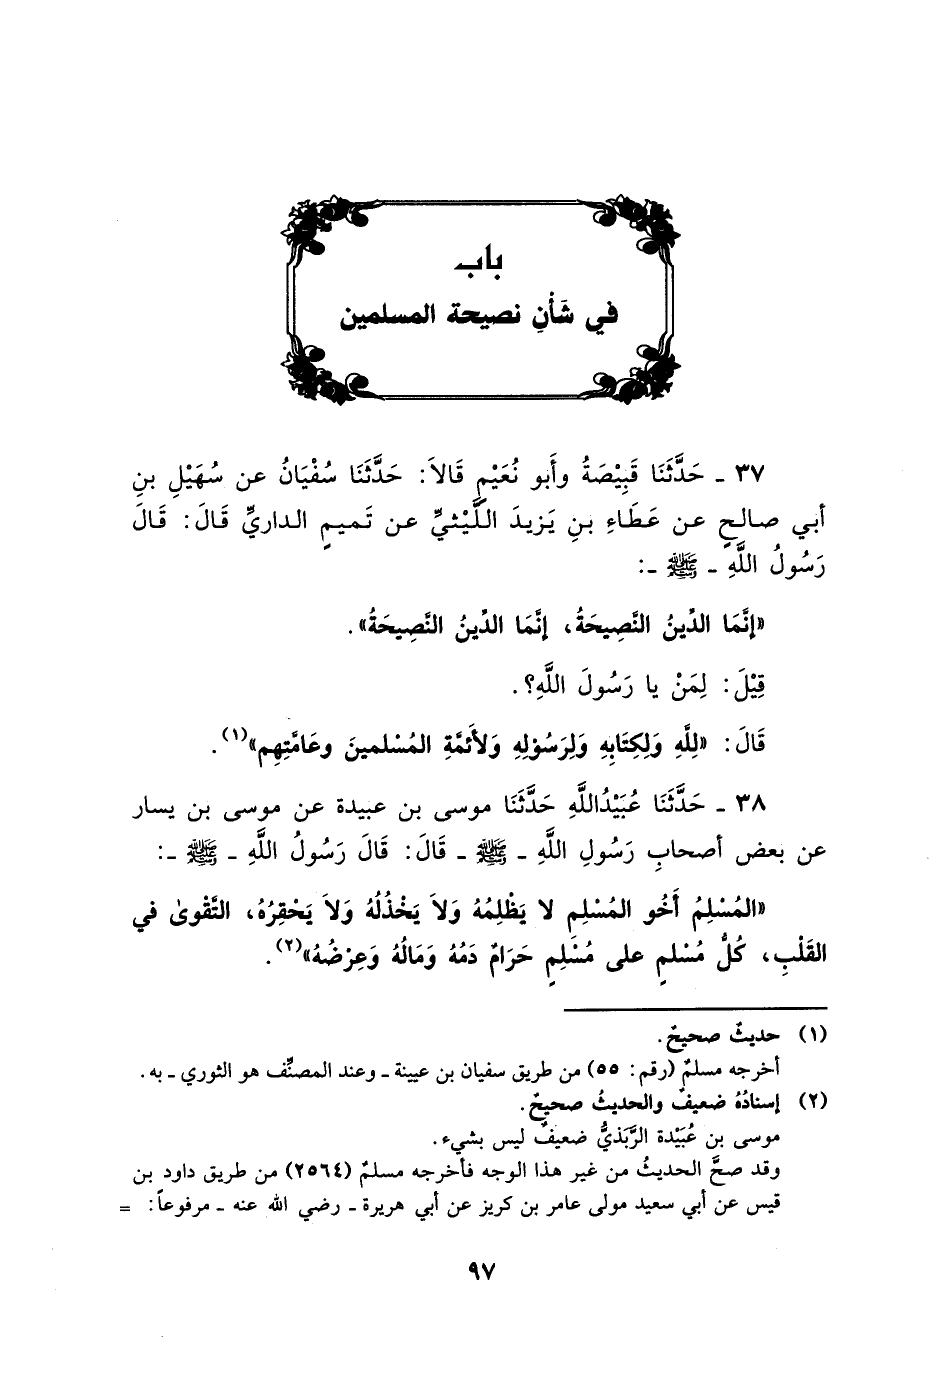 باب
في شَأنِ نصيحة المسلمين
٣٧ ـ حَدَّثَنَا قَبِيْصَةُ وأَبو نُعَيْمٍ قَالاَ: حَدَّثَنَا سُفْيَانُ عن سُهَيْلِ بنِ
أبي صالحٍ عن عَطَاءِ بنِ يَزيدَ اللَّيْثيِّ عن تَميمٍ الداريِّ قَالَ: قَالَ
رَسُولُ اللَّهِ ـ ﷺ ـ:
«إنَّمَا الدِّينُ النَّصِيحَةُ، إنَّمَا الدِّينُ النَّصِيحَةُ».
قِيْلَ: لِمَنْ يا رَسُولَ اللَّهِ؟.
قَالَ: «لِلَّهِ وَلِكِتَابِهِ وَلِرَسُوْلِهِ وَلأَئمَّةِ المُسْلمينَ وعَامَّتِهِم»(١).
٣٨ ـ حَدَّثَنَا عُبَيْدُاللَّهِ حَدَّثَنَا موسى بن عبيدة عن موسى بن يسار
عن بعض أصحابِ رَسُولِ اللَّهِ ـ ﷺ ـ قَالَ: قَالَ رَسُولُ اللَّهِ ـ ﷺ ـ:
«المُسْلِمُ أَخُو المُسْلِمِ لا يَظْلِمُهُ وَلاَ يَخْذُلُهُ وَلاَ يَحْقِرُهُ، التَّقْوىٰ في
القَلْبِ، كُلُّ مُسْلمٍ على مُسْلِمٍ حَرَامٌ دَمُهُ وَمَالُهُ وَعِرْضُهُ»(٢).
(١) حديثٌ صحيحٌ.
أخرجه مسلمٌ (رقم: ٥٥) من طريق سفيان بن عيينة ـ وعند المصنِّف هو الثوري ـ به.
(٢) إسنادُهُ ضعيفٌ والحديثُ صحيحٌ.
موسى بن عُبَيْدة الرَّبَذيُّ ضعيفٌ ليس بشيء.
وقد صحَّ الحديثُ من غير هذا الوجه فأخرجه مسلمٌ (٢٥٦٤) من طريق داود بن
قيس عن أبي سعيد مولى عامر بن كريز عن أبي هريرة ـ رضي الله عنه ـ مرفوعاً: =
٩٧